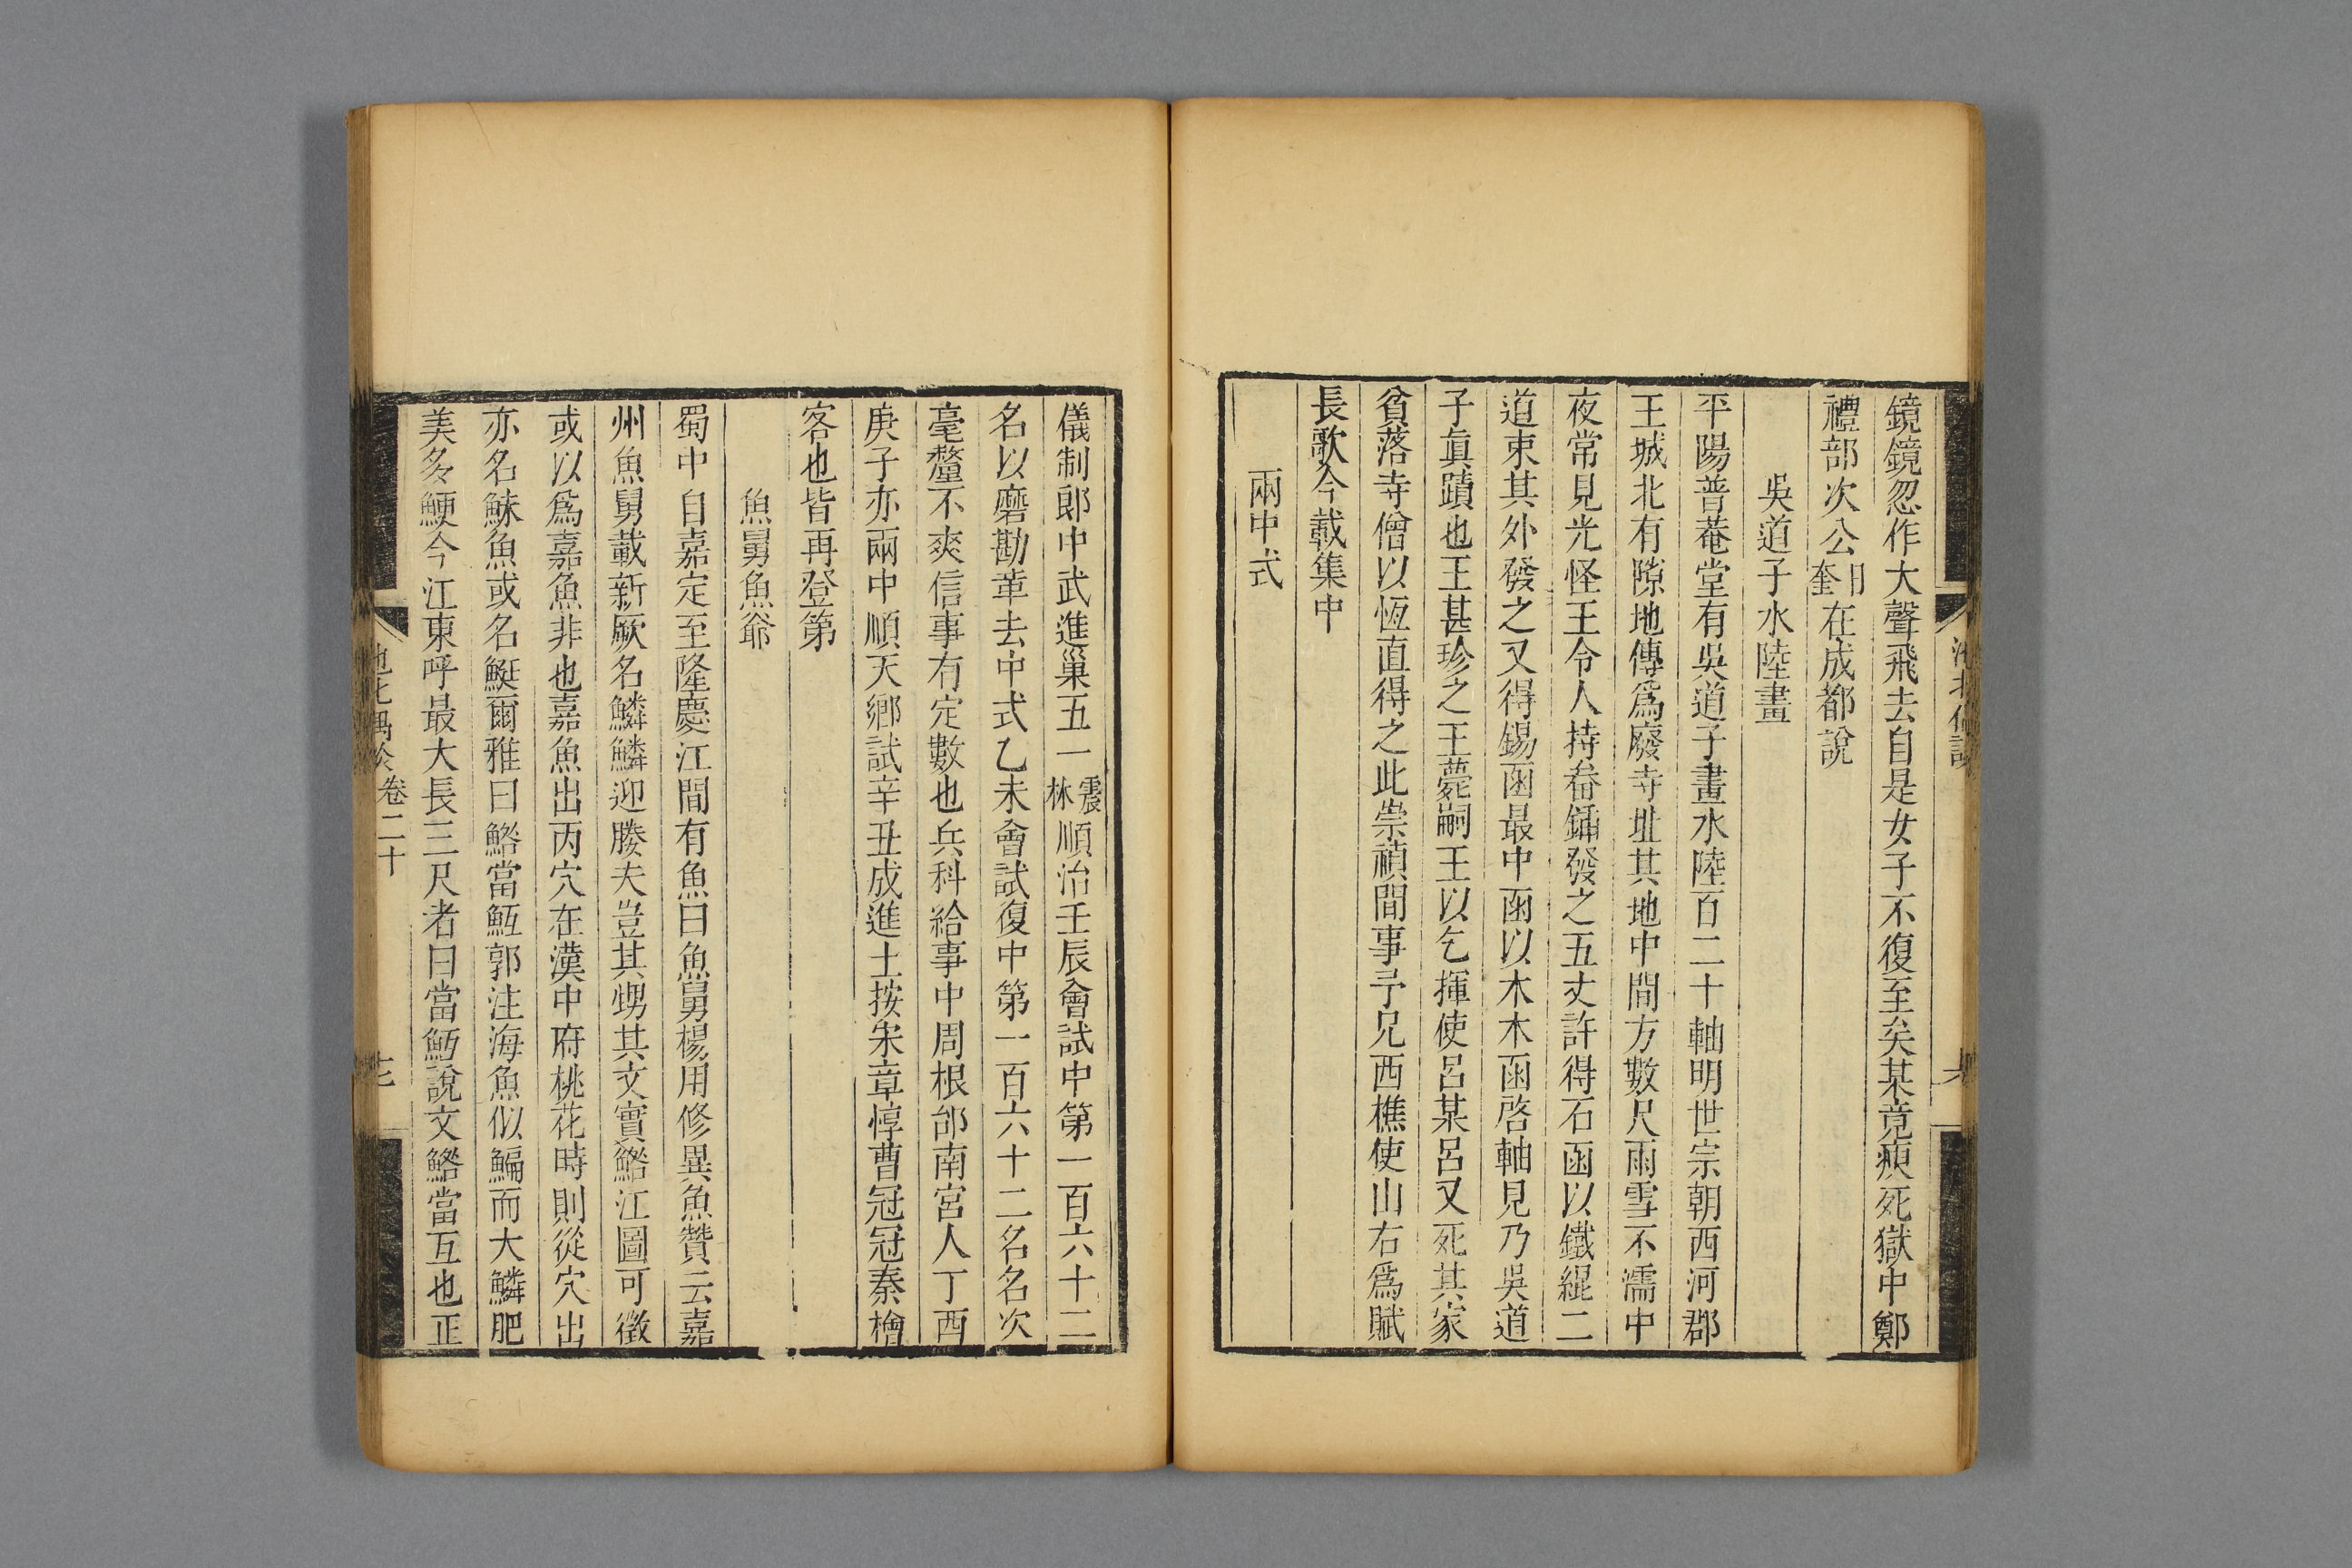 鏡鏡忽作大聲飛去自是女子不復至矣某竟瘐死獄中鄭
禮部次公日奎在成都說
吳道子水陸畫
平陽普菴堂有吳道子畫水陸百二十軸明世宗朝西河郡
王城北有隙地傳爲廢寺址其地中間方數尺雨雪不濡中
夜常見光怪王令人持畚鍤發之五丈許得石函以鐵緄二
道束其外發之又得錫函最中函以木木函啓軸見乃吳道
子眞蹟也王甚珍之王薨嗣王以乞揮使呂某呂又死其家
貧落寺僧以恆直得之此崇禎間事予兄西樵使山右爲賦
長歌今載集中
兩中式
儀制郎中武進巢五一震林順治壬辰會試中第一百六十二
名以磨勘革去中式乙未會試復中第一百六十二名名次
毫釐不爽信事有定數也兵科給事中周根郃南宮人丁酉
庚子亦兩中順天鄉試辛丑成進士按朱章惇曹冠冠秦檜
客也皆再登第
魚舅魚爺
蜀中自嘉定至隆慶江間有魚曰魚舅楊用修異魚贊云嘉
州魚舅載新厥名鱗鱗迎媵夫豈其甥其文實鮥江圖可徵
或以爲嘉魚非也嘉魚出丙穴在漢中府桃花時則從穴出
亦名鮇魚或名鯅爾雅曰鮥當魱郭注海魚似鯿而大鱗肥
美多鯁今江東呼最大長三尺者曰當魱說文鮥當互也正
卷二十